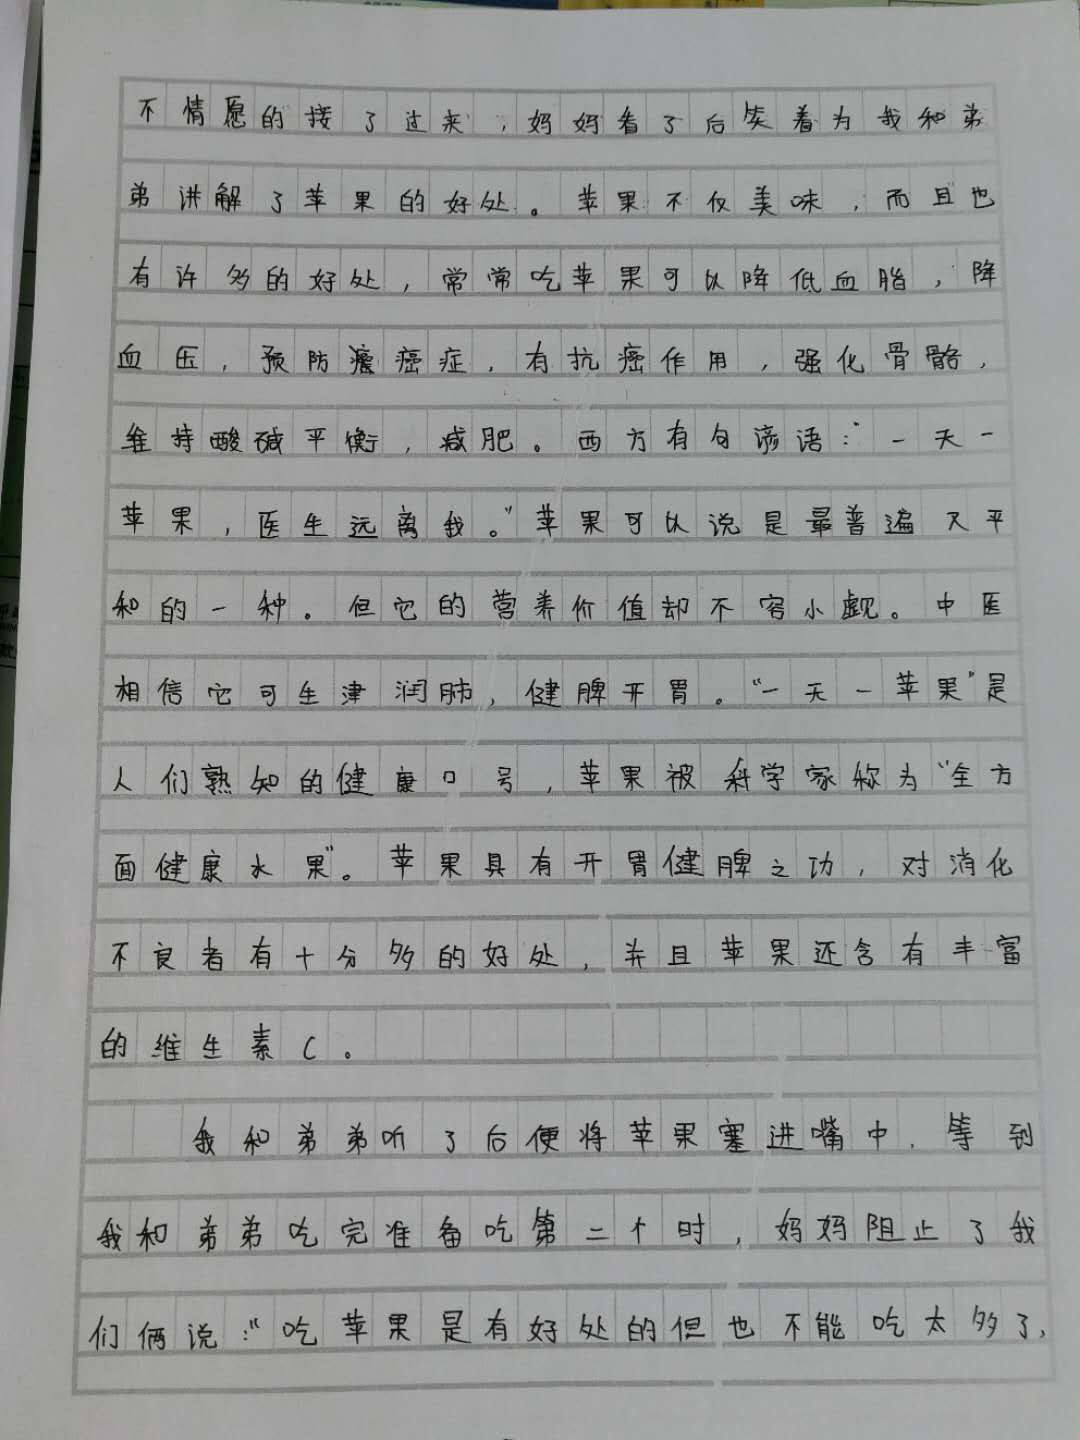 不情愿的接了过来，妈妈看了后笑着为我和弟
弟讲解了苹果的好处。苹果不仅美味，而且也
有许多的好处，常常吃苹果可以降低血脂，降
血压，预防癌症，有抗癌作用，强化骨骼，
维持酸碱平衡，减肥。西方有句谚语：“一天一
苹果，医生远离我。”苹果可以说是最普遍又平
和的一种。但它的营养价值却不容小觑。中医
相信它可生津润肺，健脾开胃。“一天一苹果”是
人们熟知的健康口号，苹果被科学家称为“全方
面健康水果”。苹果具有开胃健脾之功，对消化
不良者有十分多的好处，并且苹果还含有丰富
的维生素C。
我和弟弟听了后便将苹果塞进嘴中，等到
我和弟弟吃完准备吃第二个时，妈妈阻止了我
们俩说：“吃苹果是有好处的但也不能吃太多了，